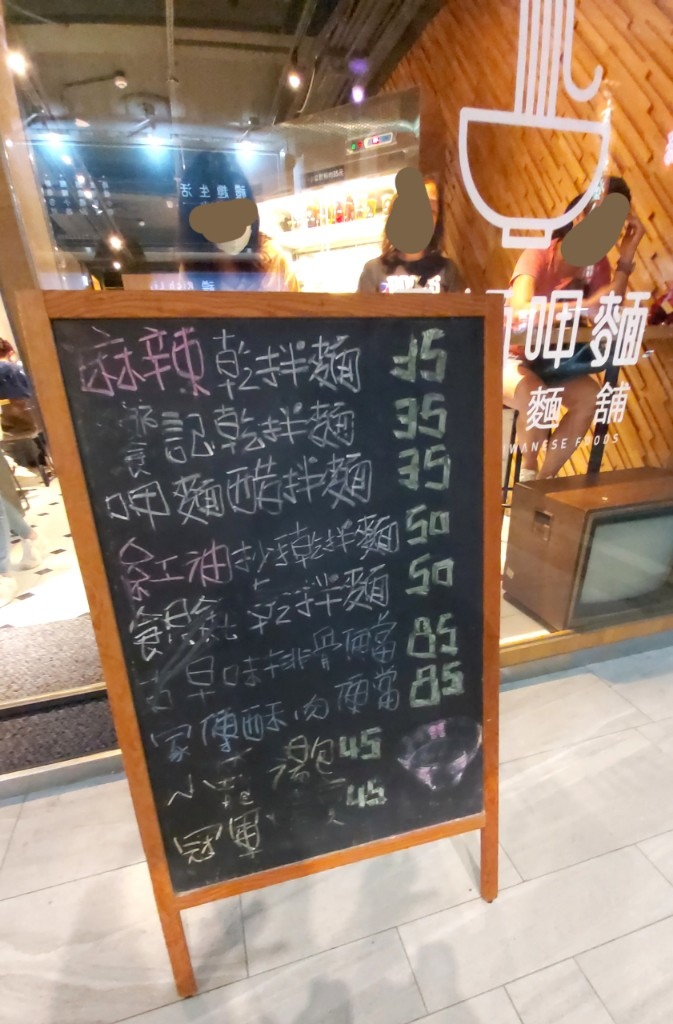 麻辣乾拌麵 35
記乾拌麵 35
呷麵醋拌麵 35
紅油抄手乾拌麵 50
乾拌麵 50
古早味排骨便當 85
家傳酥肉便當 85
小籠湯包 45
冠軍 45
呷麵
麵舖
WANESE FOODS